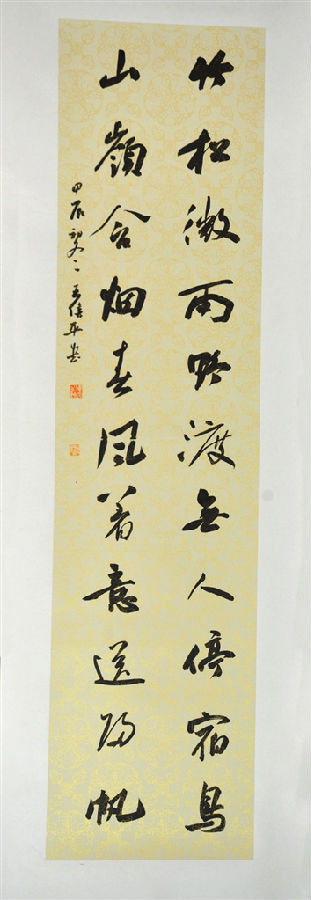 竹松微雨野渡无人停宿鸟
山岭含烟春风着意送归帆
甲辰初夏王信平书